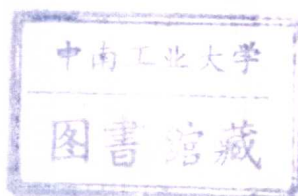 中南工业大学
图書馆藏